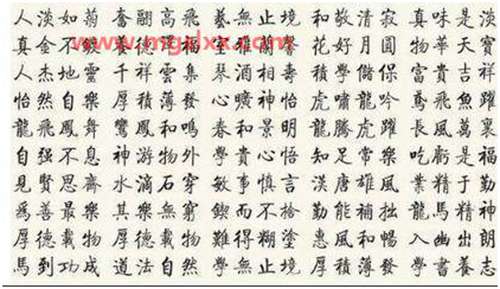 人淡如菊 奮翮高飛 藝無止境 和敬清寂 真味是淡
真金不鍍 德 花好月圓 物華天寶
人杰地靈 千祥雲集 琴酒相壽 學儲保 富貴吉祥
怡然自樂 厚積薄發 心曠神怡 虎嘯龍吟 鳶飛魚躍
龍飛鳳舞 鸞鳳和鳴 春和景明 龍騰虎躍 長風萬裏
自强不息 神游物外 學貴心悟 知足常樂 吃虧是福
見賢思齋 水滴石穿 敏事慎言 漢唐雄風 業精于勤
爲善最樂 其樂無窮 鍥而不捨 勤能補拙 龍馬精神
厚德載物 厚德載物 難得糊塗 惠風和暢 入幽出朗
馬到功成 道法自然 學無止境 厚積薄發 學書養志